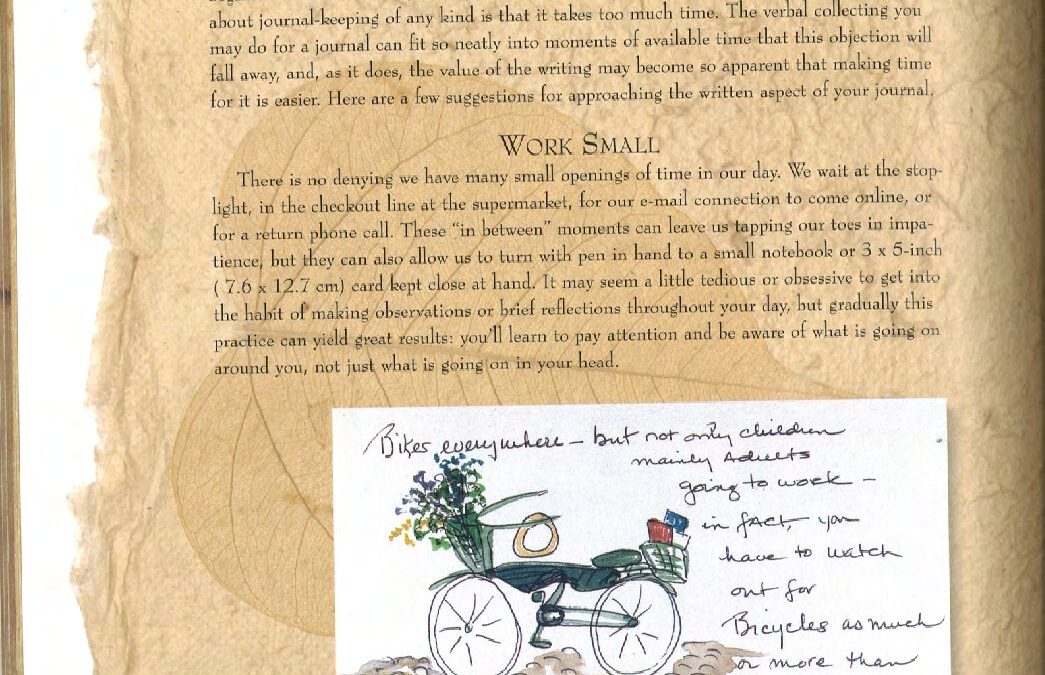 about journal-keeping of any kind is that it takes too much time. The verbal collecting you
may do for a journal can fit so neatly into moments of available time that this objection will
fall away, and, as it does, the value of the writing may become so apparent that making time
for it is easier. Here are a few suggestions for approaching the written aspect of your journal.
WORK SMALL
There is no denying we have many small openings of time in our day. We wait at the stop-
light, in the checkout line at the supermarket, for our e-mail connection to come online, or
for a return phone call. These “in between” moments can leave us tapping our toes in impa-
tience, but they can also allow us to turn with pen in hand to a small notebook or 3 x 5-inch
( 7.6 x 12.7 cm) card kept close at hand. It may seem a little tedious or obsessive to get into
the habit of making observations or brief reflections throughout your day, but gradually this
practice can yield great results: you’ll learn to pay attention and be aware of what is going on
around you, not just what is going on in your head.
Bikes everywhere – but not only children
mainly Adults
going to work –
in fact, you
have to watch
out for
Bicycles as much
or more than